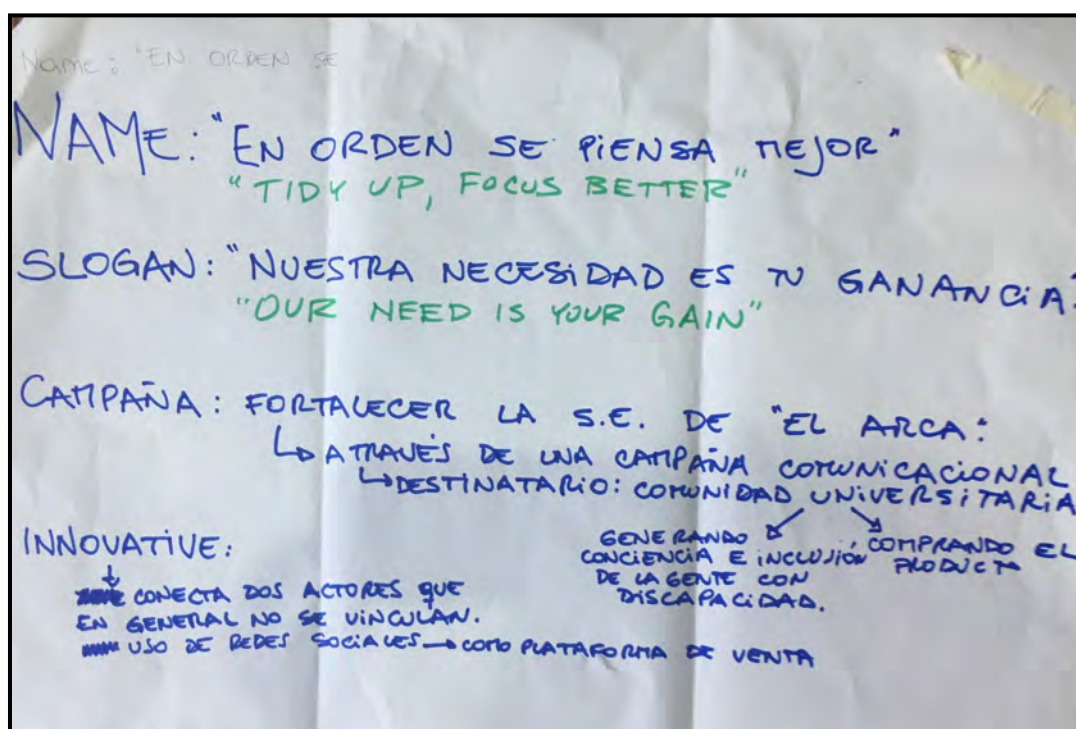 Name: "EN ORDEN SE
NAME: "EN ORDEN SE PIENSA MEJOR"
"TIDY UP, FOCUS BETTER"
SLOGAN: "NUESTRA NECESIDAD ES TU GANANCIA"
"OUR NEED IS YOUR GAIN"
CAMPAÑA: FORTALECER LA S.E. DE "EL ARCA:
↳ A TRAVÉS DE UNA CAMPAÑA COMUNICACIONAL
↳ DESTINATARIO: COMUNIDAD UNIVERSITARIA
GENERANDO
CONCIENCIA E INCLUSIÓN
DE LA GENTE CON
DISCAPACIDAD.
, COMPRANDO EL
PRODUCTO
INNOVATIVE:
CONECTA DOS ACTORES QUE
EN GENERAL NO SE VINCULAN.
USO DE REDES SOCIALES → COMO PLATAFORMA DE VENTA